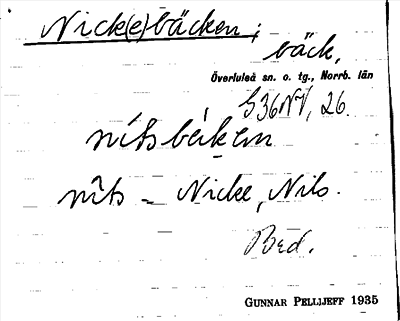 Nick(e)bäcken;
bäck,
Överluleå sn. o. tg., Norrb. län
G36NV, 26.
nítsbékęn
nîts - Nicke, Nils.
Bed.
GUNNAR PELLIJEFF 1935